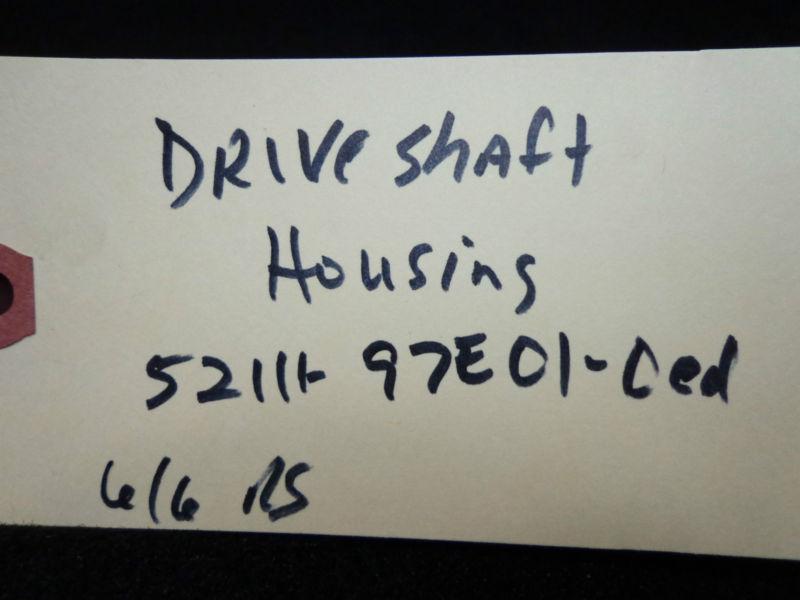 DRIVE SHAFT
Housing
52111-97E01-0ed
6/6 RS